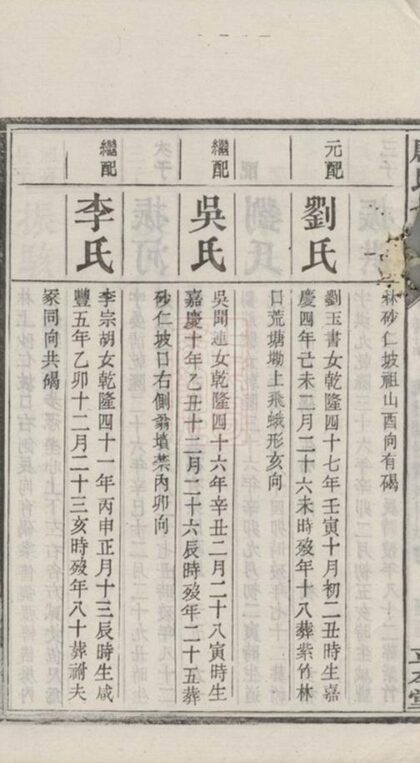 林砂仁坡祖山酉向有碣
元配
劉氏
劉玉書女乾隆四十七年壬寅十月初二丑時生嘉
慶四年己未二月二十六未時歿年十八葬紫竹林
口荒塘塝上飛蛾形亥向
繼配
吳氏
吳聞進女乾隆四十六年辛丑二月二十八寅時生
嘉慶十年乙丑十二月二十六辰時歿年二十五葬
砂仁坡口右側翁墳塋內卯向
繼配
李氏
李宗胡女乾隆四十一年丙申正月十三辰時生咸
豐五年乙卯十二月二十三亥時歿年八十葬祔夫
冢同向共碣